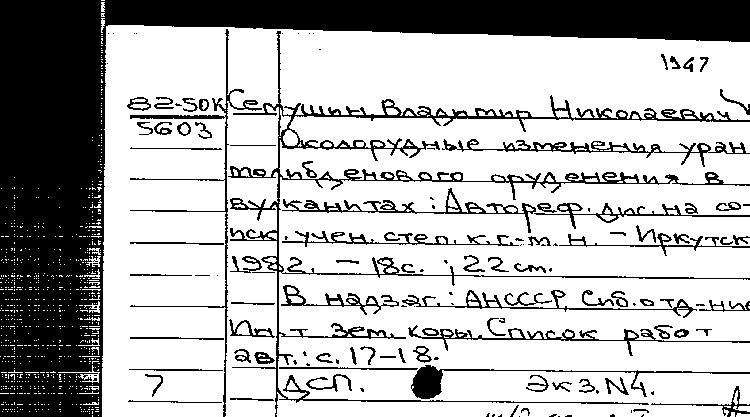 1947
82-50К Семушин, Владимир Николаевич
5603
Околорудные изменения уран
молибденового оруденения в
вулканитах : Автореф. дис. на со-
иск. учен. степ. к. г.-м. н. – Иркутск
1982. – 18с. ; 22 см.
В надзаг.: АНСССР, Сиб. отд-ние
Ин-т зем. коры. Список работ
авт.: с. 17-18.
7 ДСП. Экз. N4.